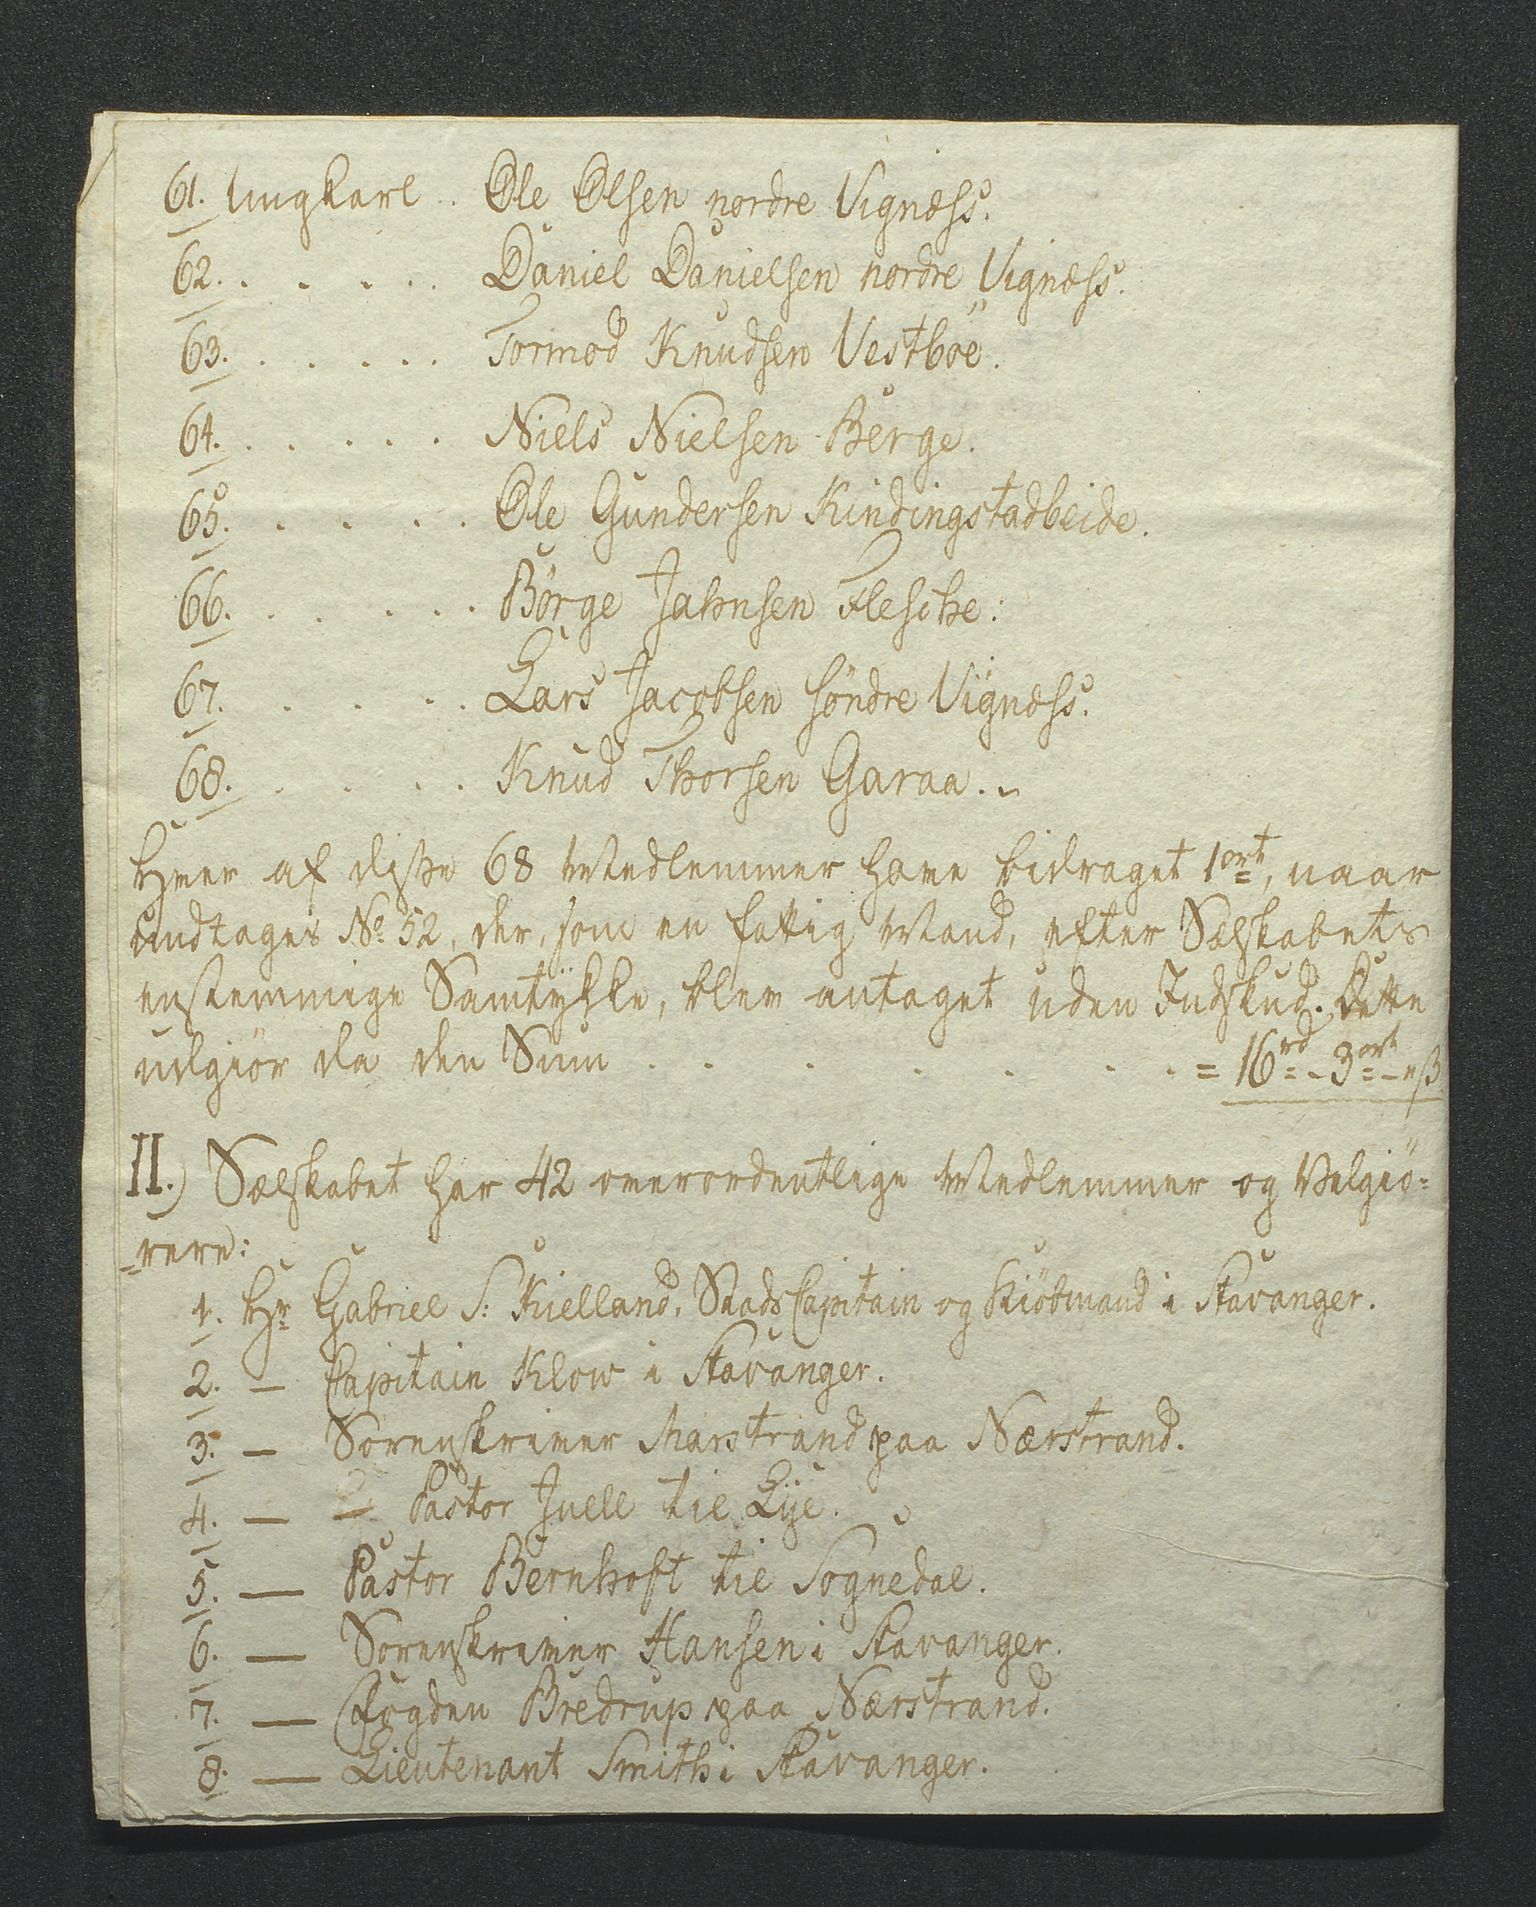 61. Ungkarl . Ole Olsen nordre Vignæss.
62. . . . . . Daniel Danielsen nordre Vignæss.
63. . . . . . Tormod Knudsen Vestböe.
64. . . . . . Niels Nielsen Berge.
65. . . . . . Ole Gundersen Kindingstadbeide.
66. . . . . . Börge Jahnsen Flesche:
67. . . . . Lars Jacobsen söndre Vignæss.
68. . . . . Knud Thorsen Garaa.
Hver af disse 68 Medlemmer have bidraget 1 ort, naar
undtages No 52, der, som en fattig Mand, efter Sælskabets
enstemmige Samtykke, blev antaget uden Indskud. Dette
udgiör da den Sum . . . . . . . = 16 rd - 3 ort - " ß
II.) Sælskabet har 42 overordentlige Medlemmer og Velgiö=
=rere:
1. Hr Gabriel S: Kielland, StadsCapitain og Kiöbmand i Stavanger.
2. — Capitain Klow i Stavanger.
3. — Sorenskriver Marstrand paa Nærstrand.
4. — — Pastor Juell til Lÿe.
5. — Pastor Bernhoft til Sognedal.
6. — Sorenskriver Hansen i Stavanger.
7. — Fogden Bredrup paa Nærstrand.
8. — Lieutenant Smith i Stavanger.